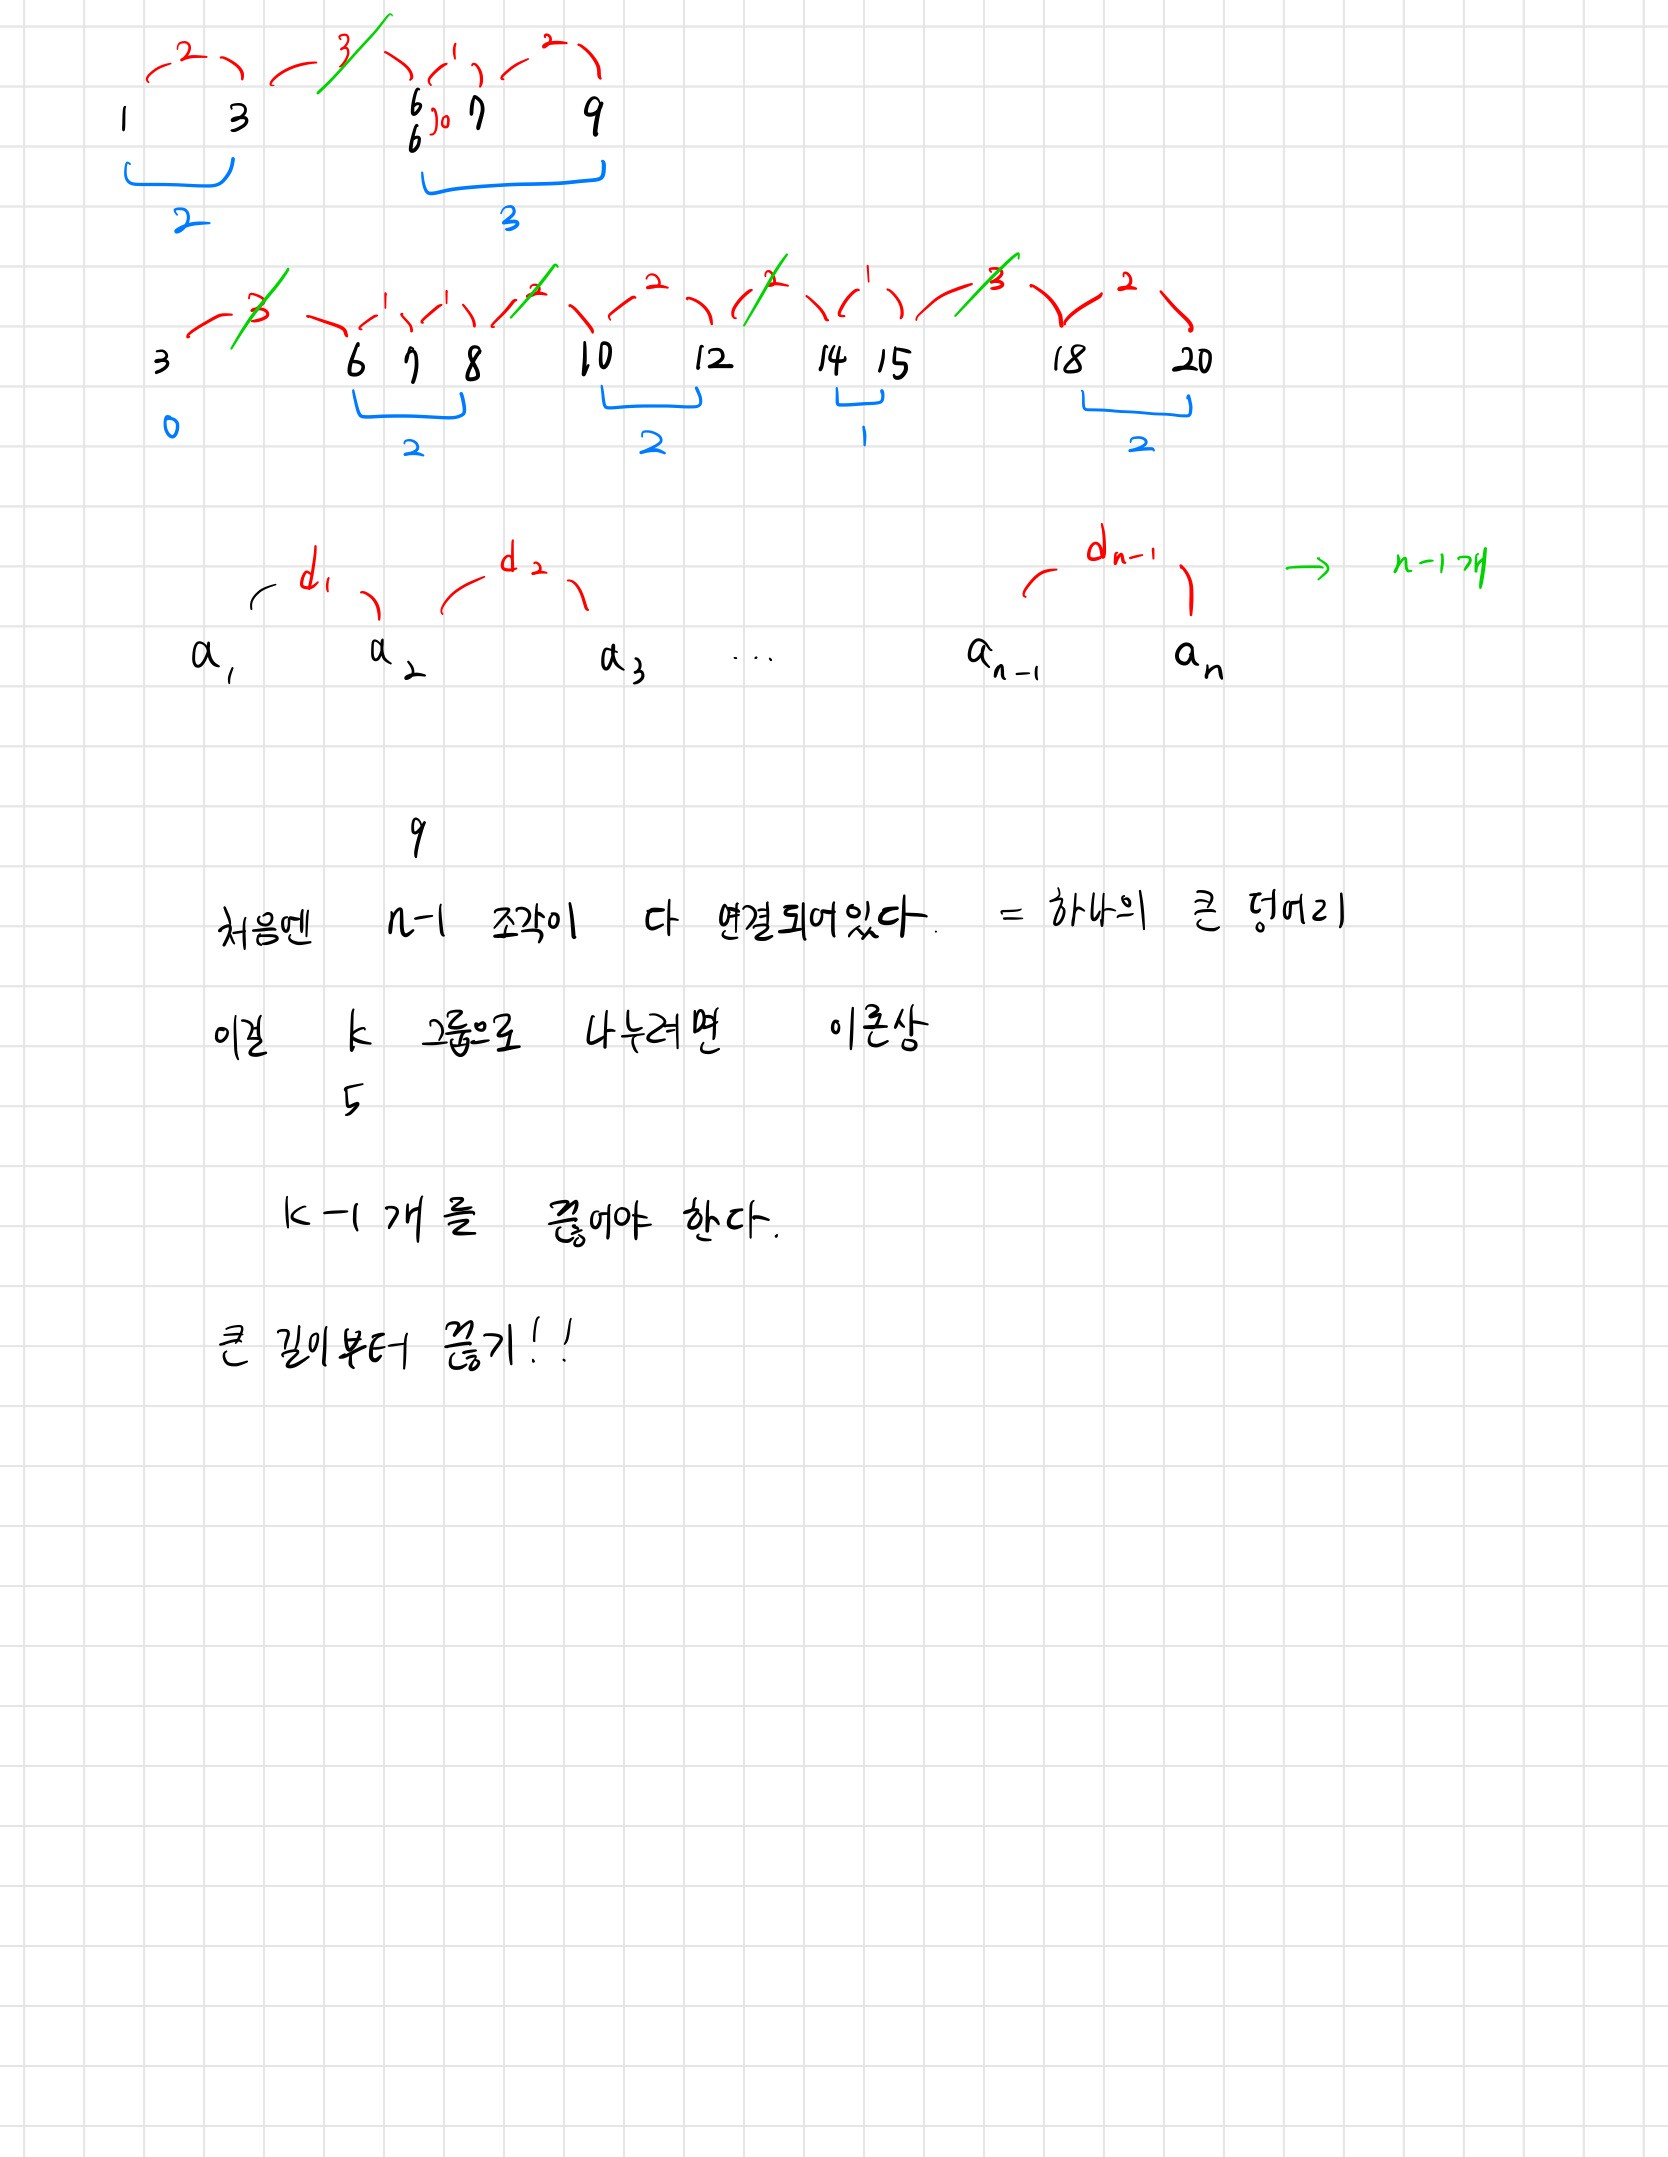 2 3 1 2
1 3 6 7 9
6 0
2 3
3 1 1 2 2 2 1 3 2
3 6 7 8 10 12 14 15 18 20
0 2 2 1 2
d1 d2 dn-1 → n-1개
a1 a2 a3 ... an-1 an
9
처음엔 n-1 조각이 다 연결되어있다. = 하나의 큰 덩어리
이걸 k 그룹으로 나누려면 이론상
5
k-1개를 끊어야 한다.
큰 길이부터 끊기!!